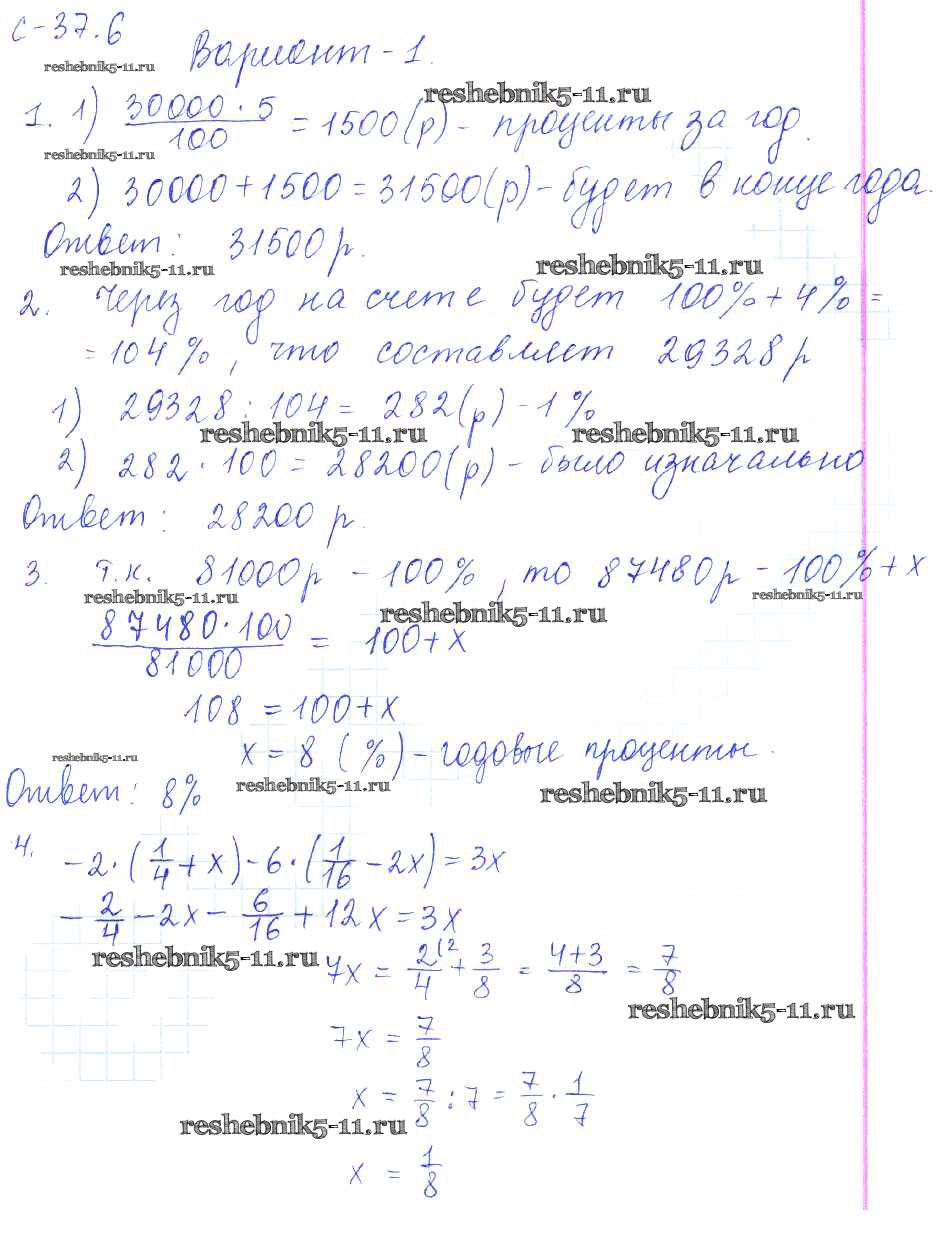 С-37.6
reshebnik5-11.ru
Вариант-1.
reshebnik5-11.ru
1. 1) 30000·5/100 = 1500(р) - проценты за год.
reshebnik5-11.ru
2) 30000+1500=31500(р)-будет в конце года.
Ответ: 31500р.
reshebnik5-11.ru reshebnik5-11.ru
2. Через год на счете будет 100%+4%=
=104%, что составляет 29328р
1) 29328:104=282(р)-1%
reshebnik5-11.ru reshebnik5-11.ru
2) 282·100=28200(р)-было изначально
Ответ: 28200 р.
3. т.к. 81000р -100%, то 87480р-100%+х
reshebnik5-11.ru reshebnik5-11.ru reshebnik5-11.ru
87480·100/81000 = 100+х
108 =100+х
х=8 (%)-годовые проценты.
reshebnik5-11.ru reshebnik5-11.ru reshebnik5-11.ru
Ответ: 8%
4. -2·(1/4+х)-6·(1/16-2х)=3х
-2/4-2х-6/16+12х=3х
reshebnik5-11.ru
7х = 2(2/4+3/8 = 4+3/8 = 7/8
reshebnik5-11.ru
7х = 7/8
х = 7/8:7=7/8·1/7
reshebnik5-11.ru
х = 1/8